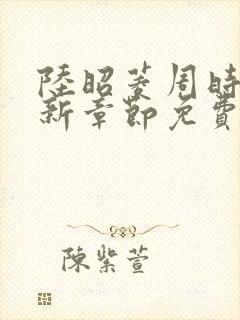 陸昭菱周時
新章節免費
陳紫萱